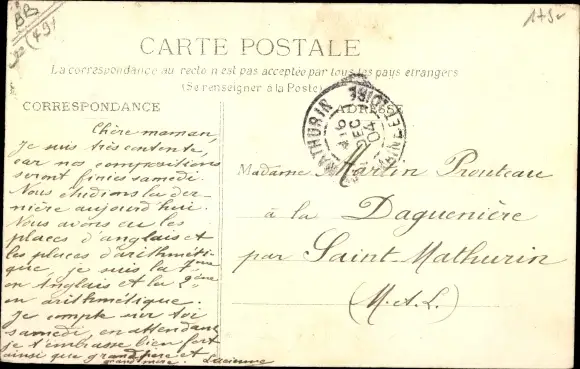 BB
(49)
1+5-
CARTE POSTALE
La correspondance au recto n'est pas acceptée par tous les pays étrangers
(Se renseigner à la Poste)
CORRESPONDANCE
ADRESSE
Chère maman,
Je suis très contente,
car nos compositions
seront finies samedi.
Nous étudions la der-
nière aujourd'hui.
Nous avons eu les
places d'anglais et
les places d'arithméti-
que, je suis la 1ère
en Anglais et la 2ème
en arithmétique.
Je compte sur toi
samedi, en attendant
je t'embrasse bien fort
ainsi que grand père et
grand'mère. Lucienne
Madame Martin Prouteau
à la Daguenière
par Saint-Mathurin
(M.&L.)
MATHURIN
16
DEC
04